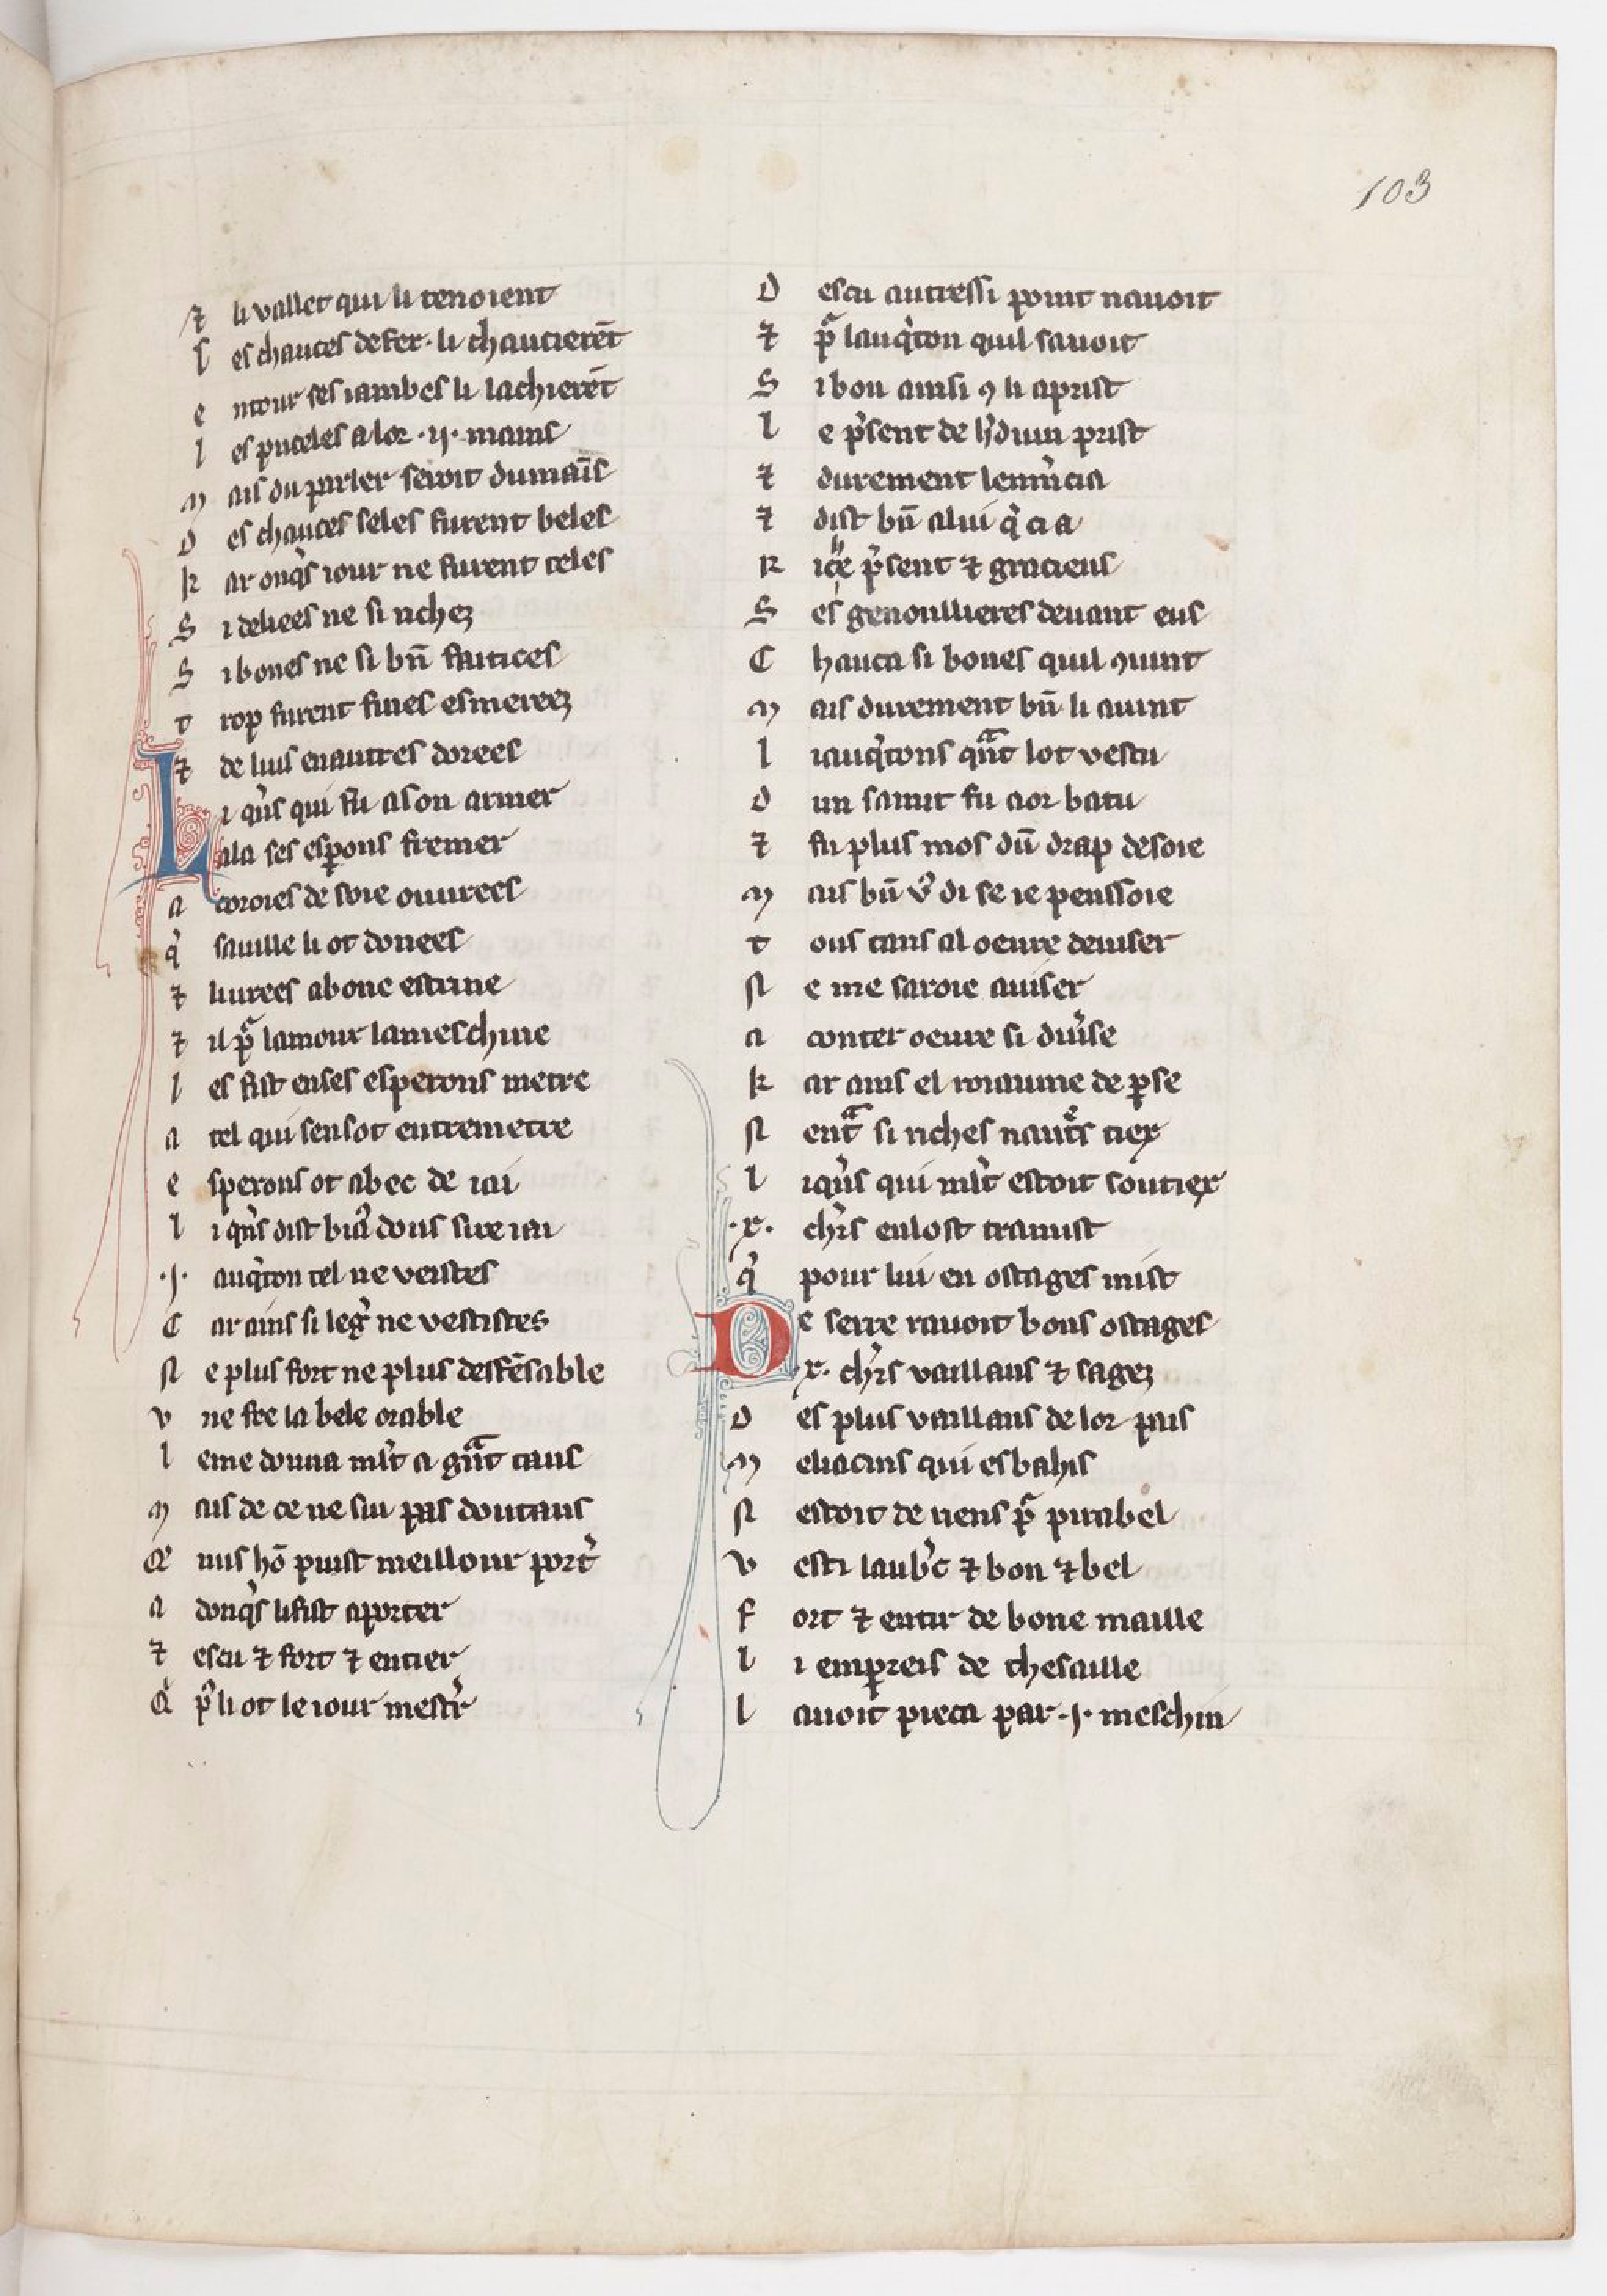 103
⁊ li vallet qui li tenoient
l es chauces de fer · li chaucierēt
e ntour ses iambes li lachierēt
l es puceles a lor ·ij· mains
m ais du parler seroit du mains
d es chauces seles furent beles
k ar onq̃s iour ne furent teles
S i deliees ne si richez
S i bones ne si bñ faitices
t rop furent fines esmerees
⁊ de luis en autres dorees
L i q̃ns qui fu a son armer
ala ses esꝑons fremer
a coroies de soie ouurees
q̓ sauille li ot donees
⁊ liurees a bone estrine
⁊ il pᵃ lamour la meschine
l es fist en ses esperons metre
a tel qui sen sot entremetre
e sperons ot a bec de iai
l i q̃ns dist biᵃ dous sire iai
·j· auq̓ton tel ne veistes
C ar ains si leg̓ ne vestistes
N e plus fort ne plus desfēsable
v ne fee la bele orable
l eme donna ml̓t a gᵃnt tans
m ais de ce ne sui pas doutans
Q̓ nus hō puist meillour port̓
a donq̃s li fist aporter
⁊ escu ⁊ fort ⁊ entier
Q̓ p̓ li ot le iour mestr̓
D escu autressi point nauoit
⁊ pᵃ lauq̓ton quil sauoit
S i bon ainsi ꝯ li aprist
l e p̓sent de h̓duin prist
⁊ durement lenm̓cia
⁊ dist bñ a lui q̓ ci a
R iche p̓sent ⁊ gracieus
S es genoullieres deuant eus
C hauca si bones quil ꝯuint
m ais durement bñ li auint
l i auq̓tons qᵃnt lot vestu
d un samit fu a or batu
⁊ fu plus mos dū drap de soie
m ais bñ v̓ di se ie penssoie
t ous tans al oeure deuiser
N e me saroie auiser
a conter oeure si diu̓se
k ar ains el roiaume de ꝑse
N entᵃ si riches nautˢ tiex
l i q̃ns qui ml̓t estoit soutiex
·x· ch̓rs en lost tramist
q̓ pour lui en ostages mist
D e serre rauoit bons ostages
·x· ch̓rs vaillans ⁊ sagez
d es plus vaillans de lor pais
m eliacins qui esbahis
N estoit de riens pᵃ pirabel
v esti laub̓c ⁊ bon ⁊ bel
f ort ⁊ entir de bone maille
l i emꝑreis de thesaille
l auoit pieca par ·j· meschin